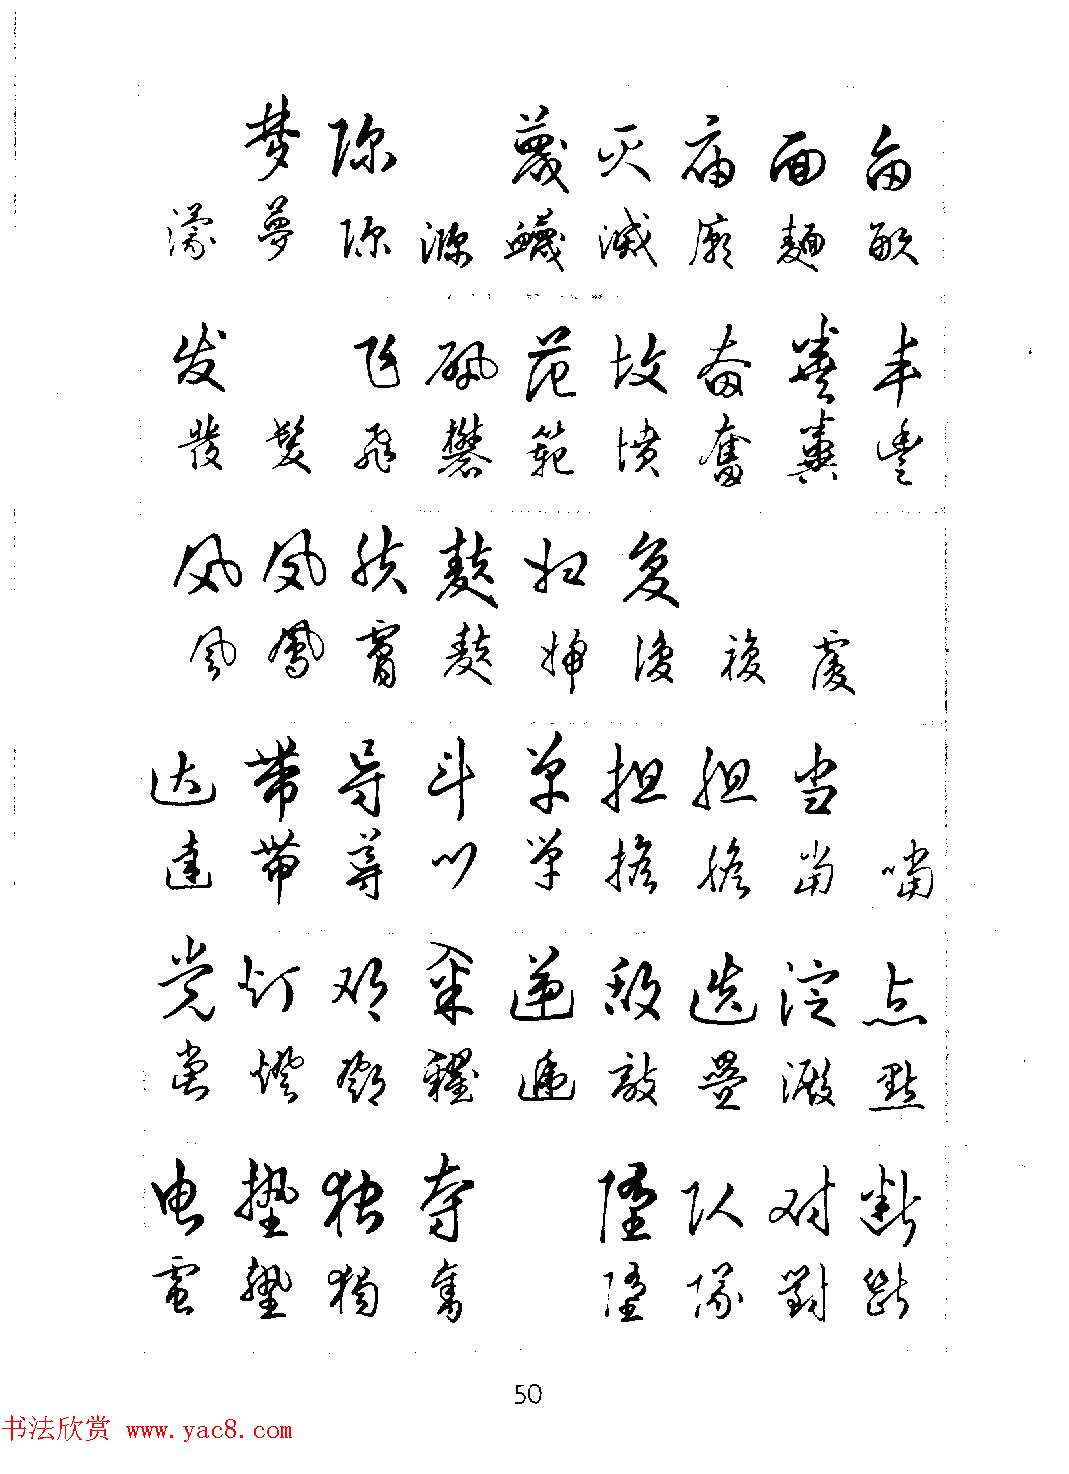 梦 弥 蔑 灭 庙 面 亩
濛 夢 瀰 衊 滅 廟 麵 畝
发 飞 矾 范 坟 奋 粪 丰
發 髮 飛 礬 範 墳 奮 糞 豐
风 凤 肤 麸 妇 复
風 鳳 膚 麩 婦 復 複 覆
达 带 导 斗 单 担 胆 当
達 帶 導 鬥 單 擔 膽 當 噹
党 灯 邓 籴 递 敌 迭 淀 点
黨 燈 鄧 糴 遞 敵 疊 澱 點
电 垫 独 夺 堕 队 对 断
電 墊 獨 奪 墮 隊 對 斷
50
书法欣赏 www.yac8.com